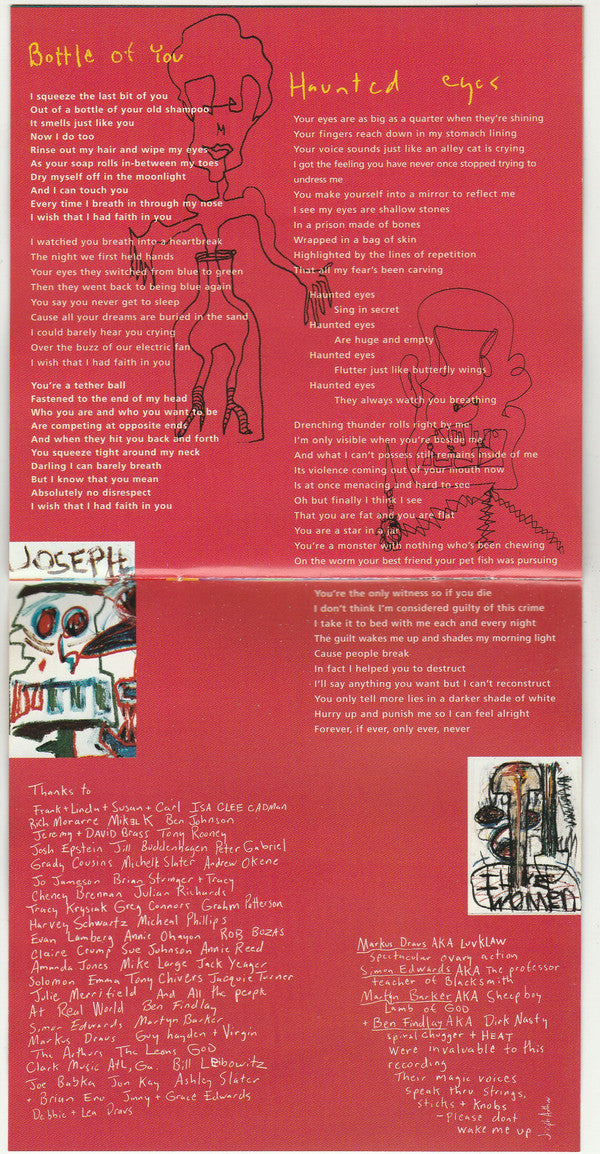 Bottle of You
I squeeze the last bit of you
Out of a bottle of your old shampoo
It smells just like you
Now I do too
Rinse out my hair and wipe my eyes
As your soap rolls in-between my toes
Dry myself off in the moonlight
And I can touch you
Every time I breath in through my nose
I wish that I had faith in you
I watched you breath into a heartbreak
The night we first held hands
Your eyes they switched from blue to green
Then they went back to being blue again
You say you never get to sleep
Cause all your dreams are buried in the sand
I could barely hear you crying
Over the buzz of our electric fan
I wish that I had faith in you
You're a tether ball
Fastened to the end of my head
Who you are and who you want to be
Are competing at opposite ends
And when they hit you back and forth
You squeeze tight around my neck
Darling I can barely breath
But I know that you mean
Absolutely no disrespect
I wish that I had faith in you
Haunted eyes
Your eyes are as big as a quarter when they're shining
Your fingers reach down in my stomach lining
Your voice sounds just like an alley cat is crying
I got the feeling you have never once stopped trying to
undress me
You make yourself into a mirror to reflect me
I see my eyes are shallow stones
In a prison made of bones
Wrapped in a bag of skin
Highlighted by the lines of repetition
That all my fear's been carving
Haunted eyes
Sing in secret
Haunted eyes
Are huge and empty
Haunted eyes
Flutter just like butterfly wings
Haunted eyes
They always watch you breathing
Drenching thunder rolls right by me
I'm only visible when you're beside me
And what I can't possess still remains inside of me
Its violence coming out of your mouth now
Is at once menacing and hard to see
Oh but finally I think I see
That you are fat and you are flat
You are a star in a jar
You're a monster with nothing who's been chewing
On the worm your best friend your pet fish was pursuing
You're the only witness so if you die
I don't think I'm considered guilty of this crime
I take it to bed with me each and every night
The guilt wakes me up and shades my morning light
Cause people break
In fact I helped you to destruct
I'll say anything you want but I can't reconstruct
You only tell more lies in a darker shade of white
Hurry up and punish me so I can feel alright
Forever, if ever, only ever, never
JOSEPH
Thanks to
Frank + Linda + Susan + Carl ISA CLEE CADMAN
Rich Morarre MikEL K Ben Johnson
Jeremy + DAVID Brass Tony Rooney
Josh Epstein Jill Buddenhagen Peter Gabriel
Grady Cousins Michelle Slater Andrew Okene
Jo Jameson Brian Stringer + Tracy
Cheney Brennan Julian Richards
Tracy Krysiak Greg Connors Grahm Patterson
Harvey Schwartz Micheal Phillips
Evan Lamberg Annie Ohayon ROB BOZAS
Claire Crump Sue Johnson Annie Reed
Amanda Jones Mike Large Jack Yeager
Solomon Emma Tony Chivers Jacquie Turner
Julie Merrifield And All the people
At Real World Ben Findlay
Simon Edwards Martyn Barker
Markus Dravs Guy hayden + Virgin
The Arthurs The Leons GOD
Clark Music Atl, Ga. Bill Leibowitz
Joe Babka Jon Kay Ashley Slater
+ Brian Eno, Jinny + Grace Edwards
Debbie + Lea Dravs
WOMEN
Markus Dravs AKA Luvklaw
Spectacular ovary action
Simon Edwards AKA The professor
teacher of Blacksmith
Martyn Barker AKA Sheepboy
Lamb of GOD
+ Ben Findlay AKA Dirk Nasty
spiral chugger + HEAT
Were invaluable to this
recording
Their magic voices
speak thru strings,
sticks + Knobs
- Please dont
wake me up